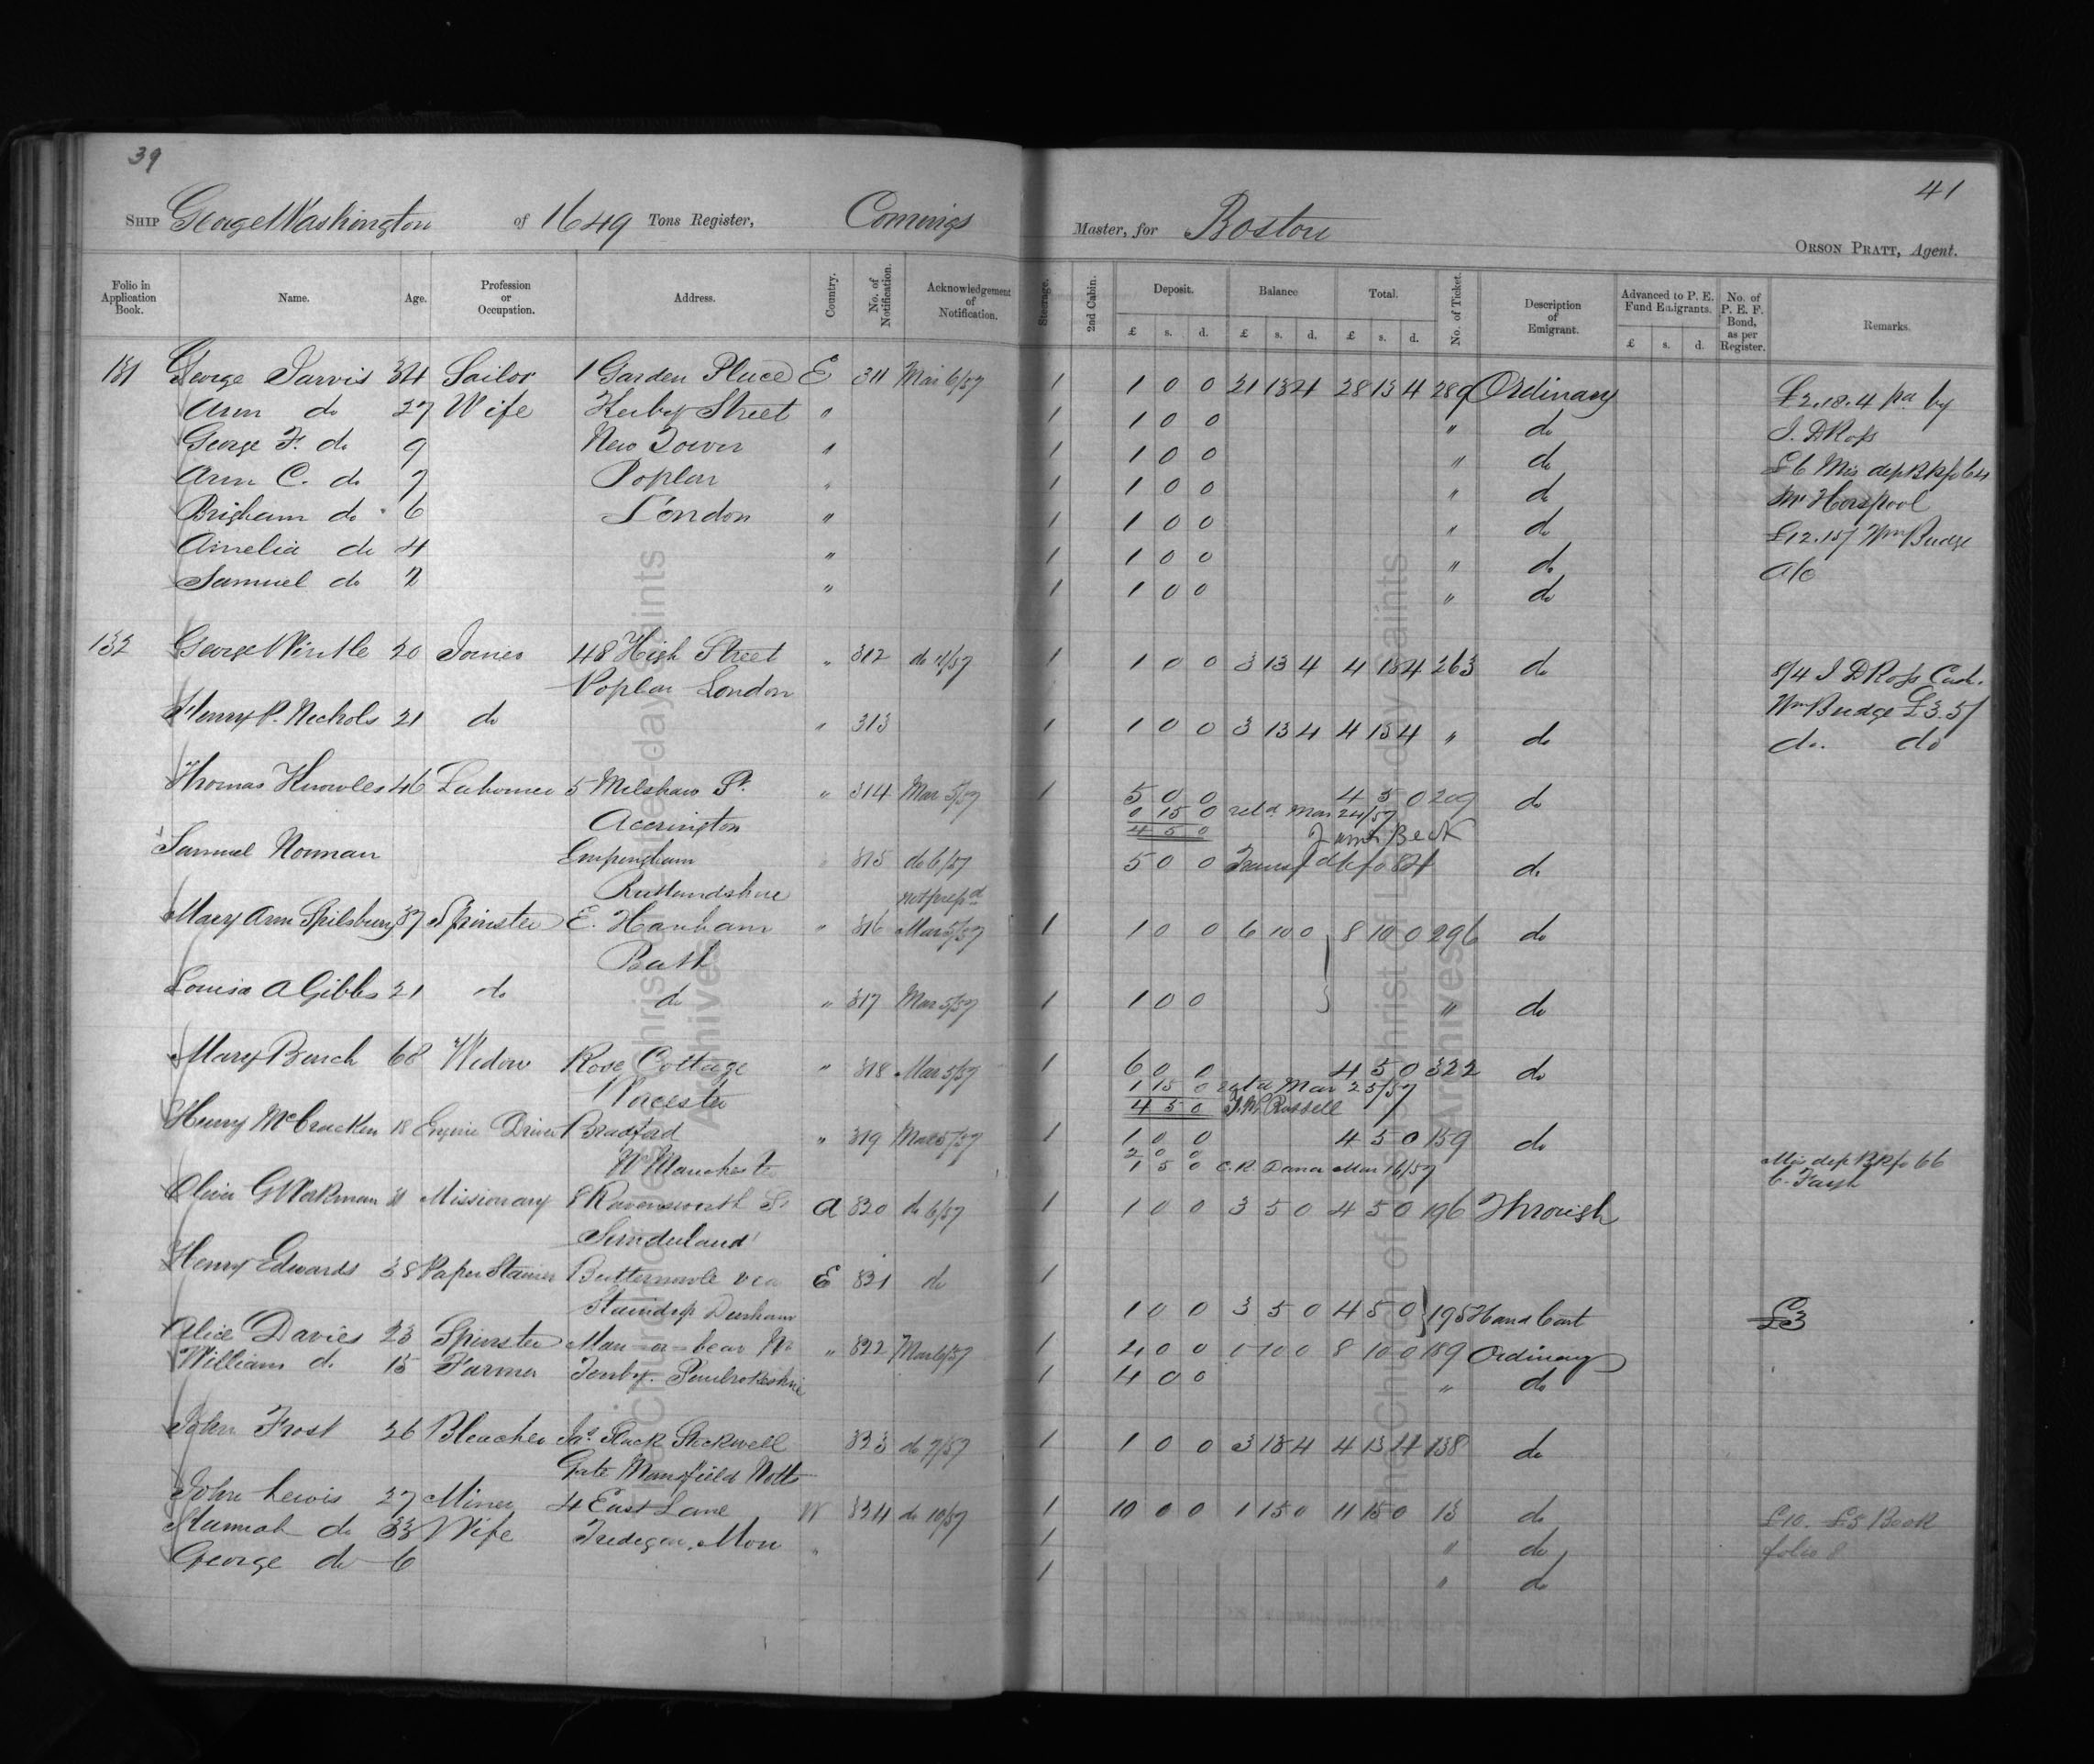 39
41
SHIP George Washington of 1649 Tons Register, Comings Master, for Boston
ORSON PRATT, Agent.
Folio in Application Book. Name. Age. Profession or Occupation. Address. Country. No. of Notification. Acknowledgement of Notification. Steerage. 2nd Cabin. Deposit. Balance Total. No. of Ticket. Description of Emigrant. Advanced to P. E. Fund Emigrants. No. of P. E. F. Bond, as per Register. Remarks.
£ s. d. £ s. d. £ s. d. £ s. d.
131 George Jarvis 34 Sailor 1 Garden Place E 311 Mar 6/57 1 1 0 0 21 13 4 28 13 4 289 Ordinary £2.18.4 pd by
Ann do 27 Wife Kerbey Street " 1 1 0 0 " do J. D Ross
George F. do 9 New Town " 1 1 0 0 " do £6 Mis dep B Rfo 64
Ann C. do 7 Poplar " 1 1 0 0 " do Mr Horspool
Brigham do 6 London " 1 1 0 0 " do £12.15/ Wm Budge
Amelia do 4 " 1 1 0 0 " do a/c
Samuel do 2 " 1 1 0 0 " do
132 George Wintle 20 Joiner 48 High Street " 312 do 11/57 1 1 0 0 3 13 4 4 13 4 263 do 8/4 J D Ross Cash.
Poplar London Wm Budge £3.5/
Henry P. Nichols 21 do " 313 1 1 0 0 3 13 4 4 13 4 " do do. do
Thomas Knowles 46 Labourer 5 Milshaw St. " 314 Mar 5/57 1 5 0 0 4 5 0 209 do
Accrington 0 15 0 retd Mar 24/57
4 5 0 James Beck
Samuel Norman Empingham " 315 do 6/57 5 0 0 Transfd to fo 84 do
Rutlandshire not prepd
Mary Ann Spilsbury 37 Spinster E. Hanham " 316 Mar 5/57 1 1 0 0 6 10 0 8 10 0 296 do
Bath
Louisa A Gibbs 21 do do " 317 Mar 5/57 1 1 0 0 " do
Mary Bench 68 Widow Rose Cottage " 318 Mar 5/57 1 6 0 0 4 5 0 322 do
Worcester 1 15 0 retd Mar 25/57
4 5 0 J. W. Russell
Henry McCracken 18 Engine Driver Bradford " 319 Mar 5/57 1 1 0 0 4 5 0 159 do
2 0 0
Nr Manchester 1 5 0 C. R. Dana Mar 16/57 Mis dep B Rfo 66
Oliver G Workman 31 Missionary 8 Ravensworth St A 320 do 6/57 1 1 0 0 3 5 0 4 5 0 196 Through
Sunderland
Henry Edwards 38 Paper Stainer E 321 do 1
Staindrop Durham 1 0 0 3 5 0 4 5 0 195 Hand Cart £3
Alice Davies 23 Spinster Man-o-bear Nr " 322 Mar 6/57 1 4 0 0 0 10 0 8 10 0 189 Ordinary
William do 15 Farmer Tenby. Pembrokeshire 1 4 0 0 " do
John Frost 26 Bleacher Jas Slack Stockwell 323 do 7/57 1 1 0 0 3 13 4 4 13 4 138 do
Gate Mansfield Notts
John Lewis 27 Miner 4 East Lane W 324 do 10/57 1 10 0 0 1 15 0 11 15 0 13 do £10. £5 Book
Hannah do 33 Wife Tredegar. Mon " 1 " do folio 8
George do 6 1 " do